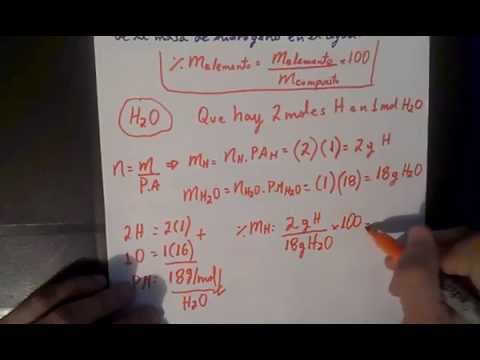 de la masa de hidrógeno en el agua
% m elemento = m elemento / m compuesto × 100
H₂O Que hay 2 moles H en 1 mol H₂O
n = m / P.A ⇒ mH = nH . PAH = (2)(1) = 2g H
mH₂O = nH₂O . PMH₂O = (1)(18) = 18g H₂O
2H = 2(1) +
1O = 1(16)
PM = 18g/mol H₂O
% mH = 2g H / 18g H₂O × 100 =